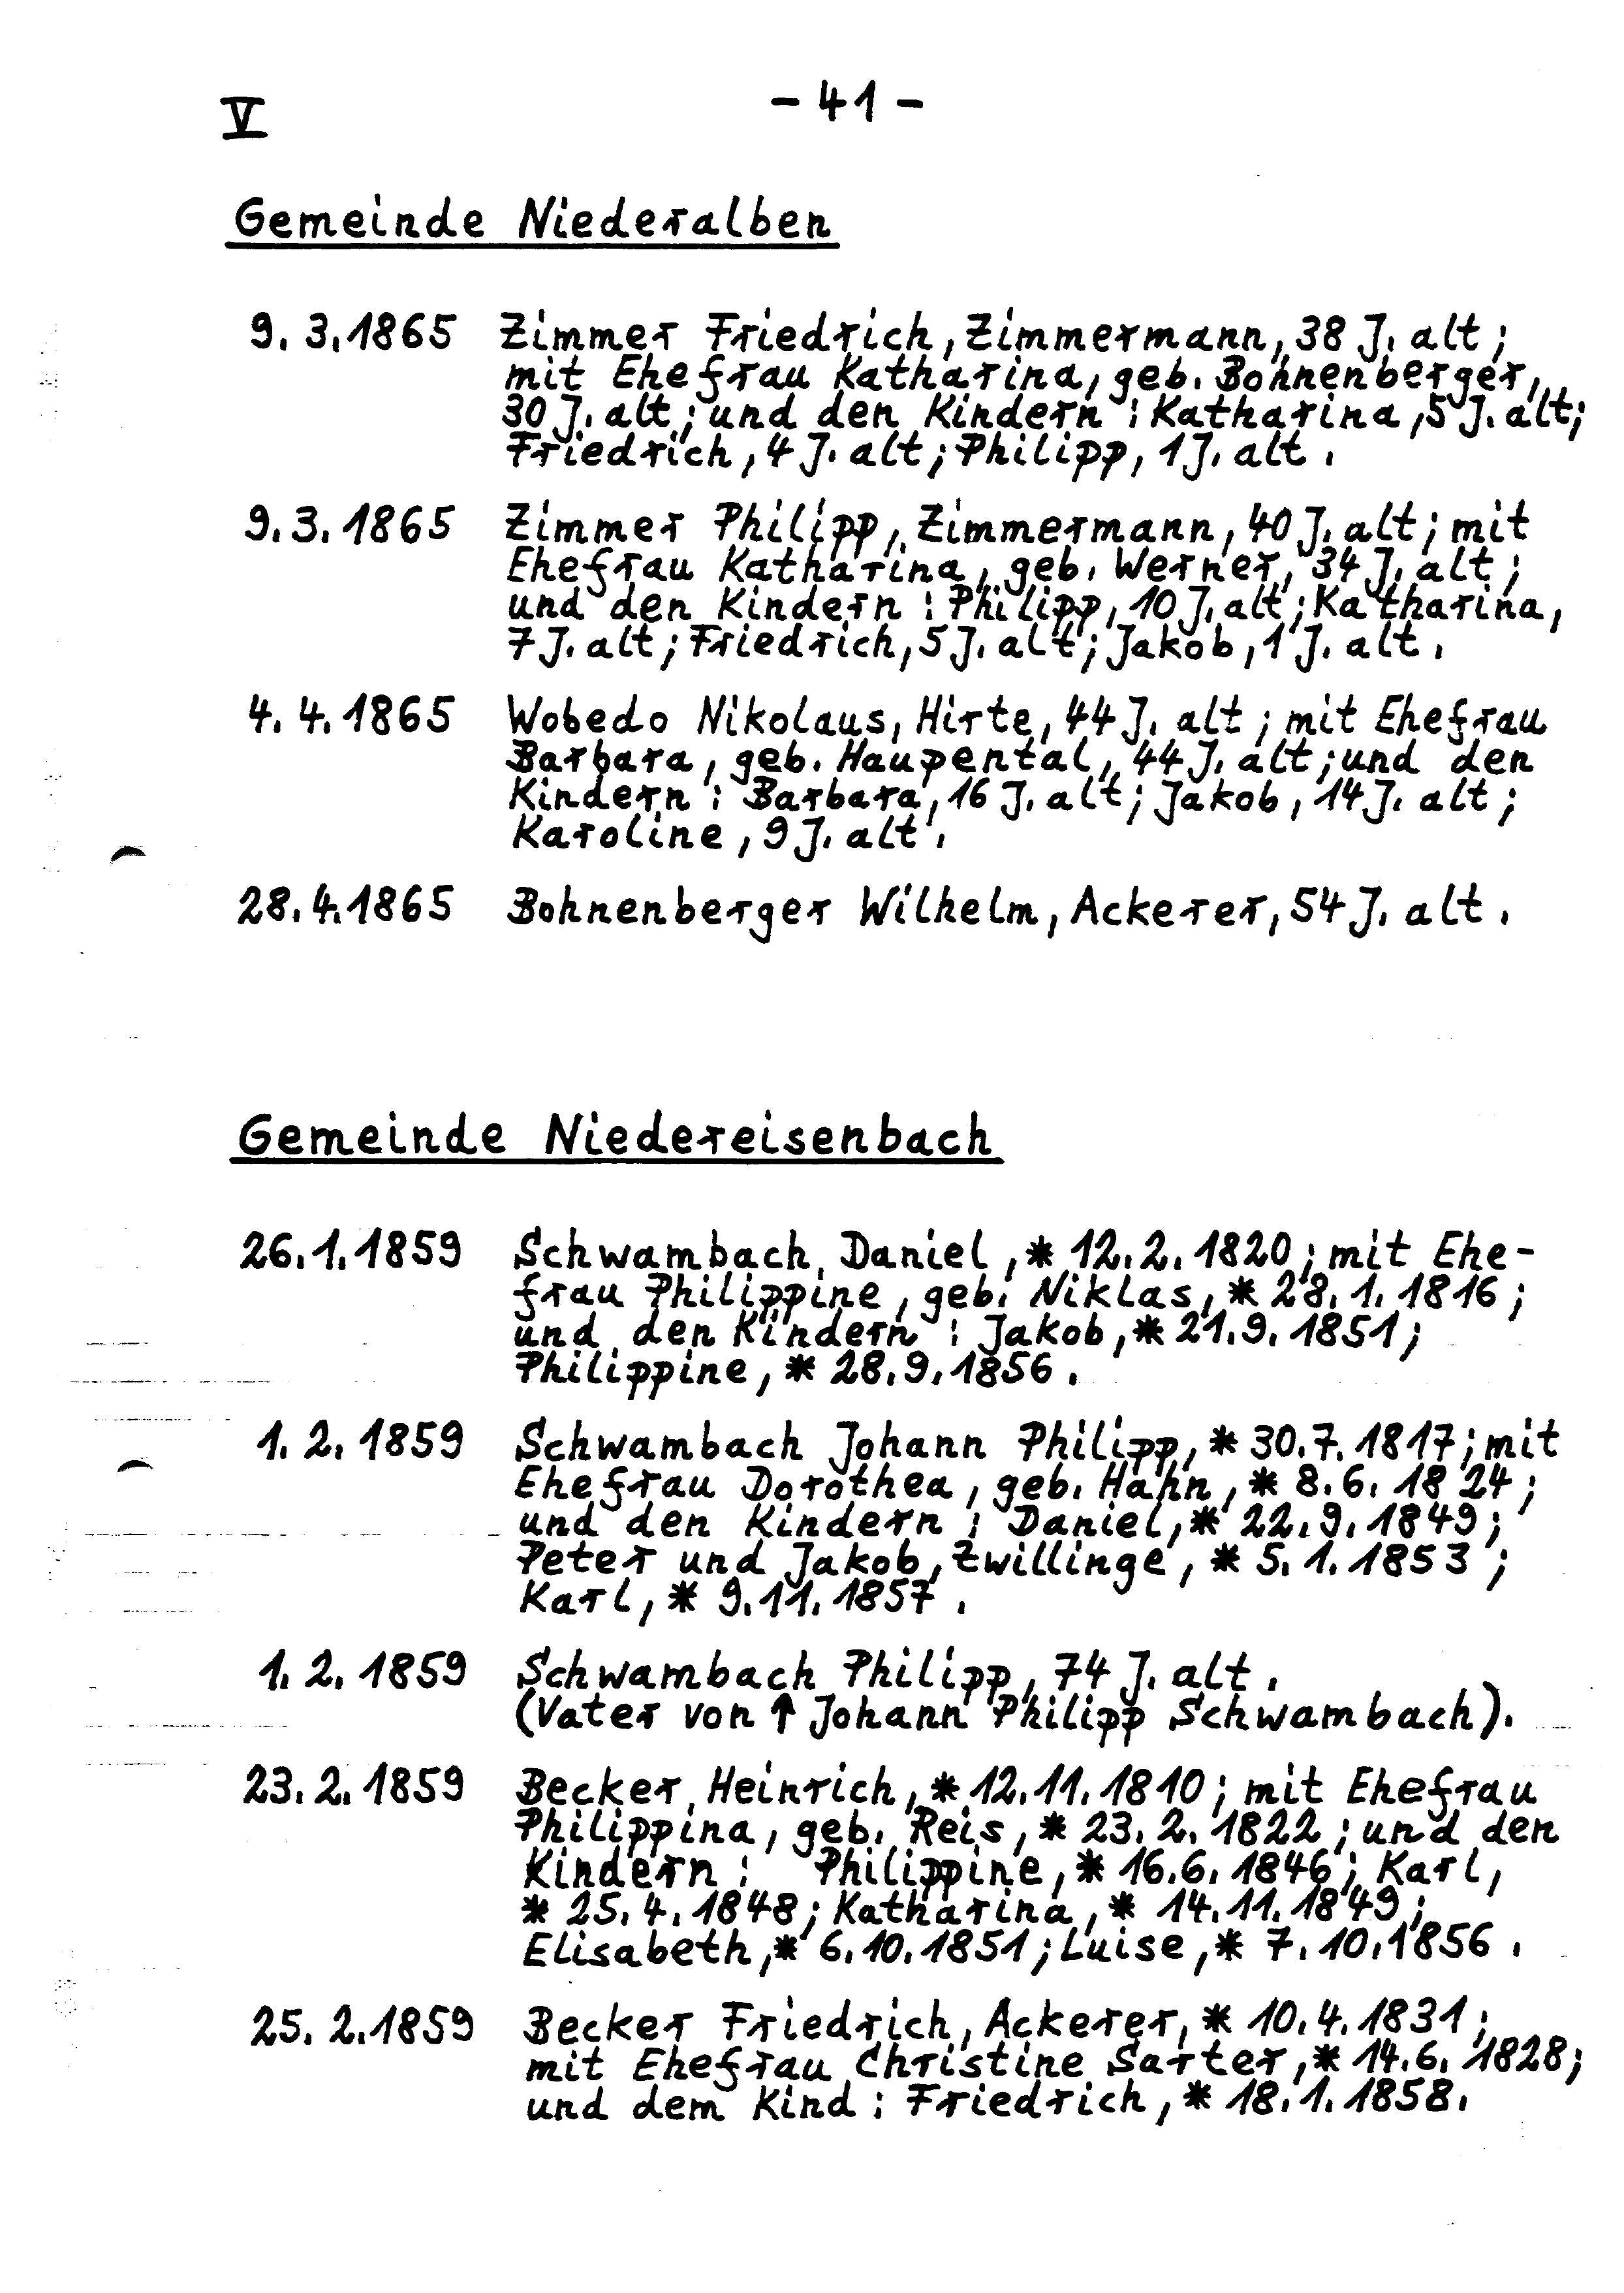 V
- 41 -
Gemeinde Niederalben
9. 3. 1865 Zimmer Friedrich, Zimmermann, 38 J. alt;
mit Ehefrau Katharina, geb. Bohnenberger,
30 J. alt; und den Kindern: Katharina, 5 J. alt;
Friedrich, 4 J. alt; Philipp, 1 J. alt.
9. 3. 1865 Zimmer Philipp, Zimmermann, 40 J. alt; mit
Ehefrau Katharina, geb. Werner, 34 J. alt;
und den Kindern: Philipp, 10 J. alt; Katharina,
7 J. alt; Friedrich, 5 J. alt; Jakob, 1 J. alt.
4. 4. 1865 Wobedo Nikolaus, Hirte, 44 J. alt; mit Ehefrau
Barbara, geb. Haupental, 44 J. alt; und den
Kindern: Barbara, 16 J. alt; Jakob, 14 J. alt;
Karoline, 9 J. alt.
28. 4. 1865 Bohnenberger Wilhelm, Ackerer, 54 J. alt.
Gemeinde Niedereisenbach
26. 1. 1859 Schwambach, Daniel, * 12. 2. 1820; mit Ehe-
frau Philippine, geb. Niklas, * 28. 1. 1816;
und den Kindern: Jakob, * 21. 9. 1851;
Philippine, * 28. 9. 1856.
1. 2. 1859 Schwambach Johann Philipp, * 30. 7. 1817; mit
Ehefrau Dorothea, geb. Hahn, * 8. 6. 1824;
und den Kindern: Daniel, * 22. 9. 1849;
Peter und Jakob, Zwillinge, * 5. 1. 1853;
Karl, * 9. 11. 1857.
1. 2. 1859 Schwambach Philipp, 74 J. alt.
(Vater von ↑ Johann Philipp Schwambach).
23. 2. 1859 Becker, Heinrich, * 12. 11. 1810; mit Ehefrau
Philippina, geb. Reis, * 23. 2. 1822; und den
Kindern: Philippine, * 16. 6. 1846; Karl,
* 25. 4. 1848; Katharina, * 14. 11. 1849;
Elisabeth, * 6. 10. 1851; Luise, * 7. 10. 1856.
25. 2. 1859 Becker Friedrich, Ackerer, * 10. 4. 1831;
mit Ehefrau Christine Sarter, * 14. 6. 1828;
und dem Kind: Friedrich, * 18. 1. 1858.